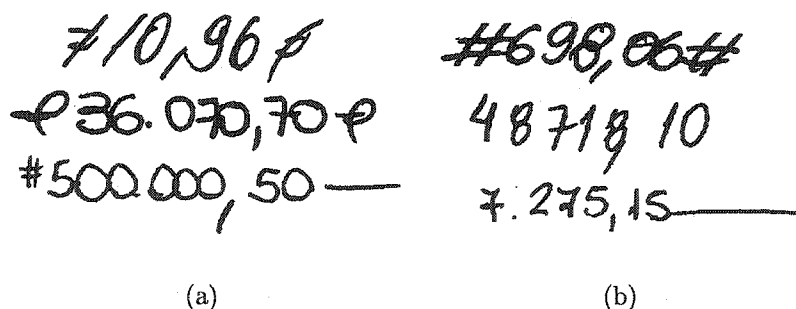 710,96
36.070,70
#500.000,50
(a)
#698,06#
48718,10
7.275,15
(b)